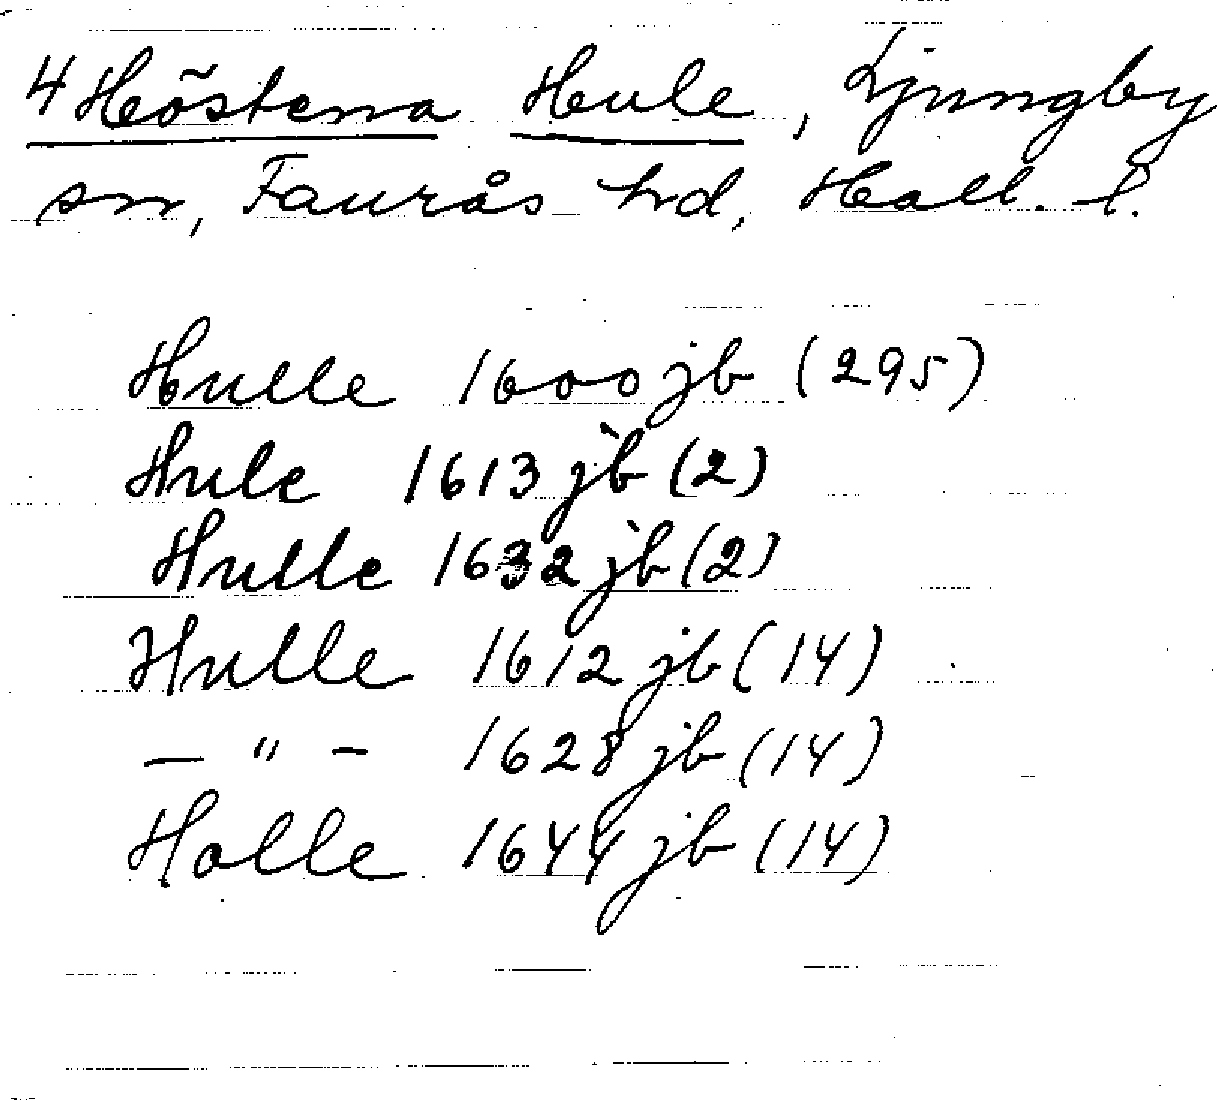 4 Höstena Hule, Ljungby
sn, Faurås hd, Hall. l.
Hulle 1600 jb (295)
Hule 1613 jb (2)
Hulle 1632 jb (2)
Hulle 1612 jb (14)
— " — 1628 jb (14)
Holle 1644 jb (14)